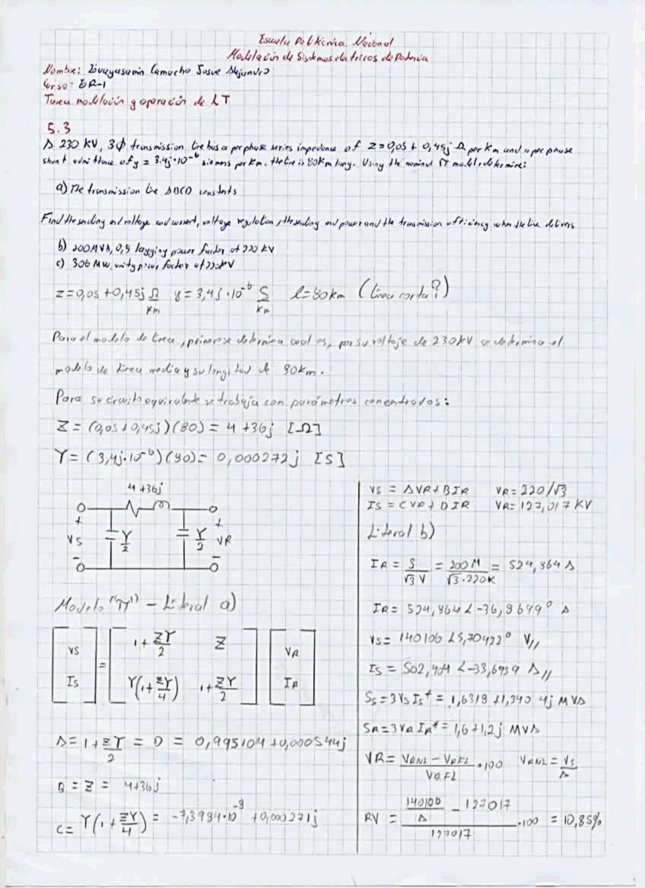 Escuela Politécnica Nacional
Modelación de Sistemas electricos de Potencia
Nombre: Camacho Josue Alejandro
Curso: GR-1
Tarea modelación y operación de LT
5.3
A 230 KV, 3Φ transmission line has a per phase series impedance of z=0,05 + 0,45j Ω per Km and a per phase
shunt admittance of y = 3.4j·10⁻⁶ siemens per Km. the line is 80Km long. Using the nominal π model, determine:
a) The transmission line ABCD constants
Find the sending end voltage and current, voltage regulation, the sending end power and the transmission efficiency when the line delivers
b) 200MVA, 0,8 lagging power factor at 220 KV
c) 306 MW, unity power factor at 220KV
z=0,05+0,45j Ω/Km y=3,4j·10⁻⁶ S/Km l=80km (Linea corta?)
Para el modelo de linea, primero se determina cual es, por su voltaje de 230KV se determina el
modelo de linea media y su longitud de 80km.
Para su circuito equivalente se trabaja con parámetros concentrados:
Z = (0,05+0,45j)(80) = 4+36j [Ω]
Y = (3,4j·10⁻⁶)(80) = 0,000272j [S]
4+36j
+ +
VS Y/2 Y/2 VR
- -
Modelo "π" - Literal a)
[VS IS] = [1+ZY/2 Z Y(1+ZY/4) 1+ZY/2] [VR IR]
A = 1+ZY/2 = D = 0,995104+0,000544j
B = Z = 4+36j
C = Y(1+ZY/4) = -7,3984·10⁻⁸ +0,000271j
VS = AVR+BIR VR=220/√3
IS = CVR+DIR VR=127,017KV
Literal b)
IR = S/√3 V = 200M/√3·220K = 524,864 A
IR= 524,864∠-36,8699° A
VS= 140106∠5,70422° V//
IS = 502,484∠-33,6959 A//
Ss=3VsIs* = 1,6318+1,3404j MVA
SR=3VR IR* = 1,6+1,2j MVA
VR= VRNL-VRFL/VRFL ·100 VRNL=Vs/A
RV = 140106/A - 127017/127017 ·100 = 10,85%